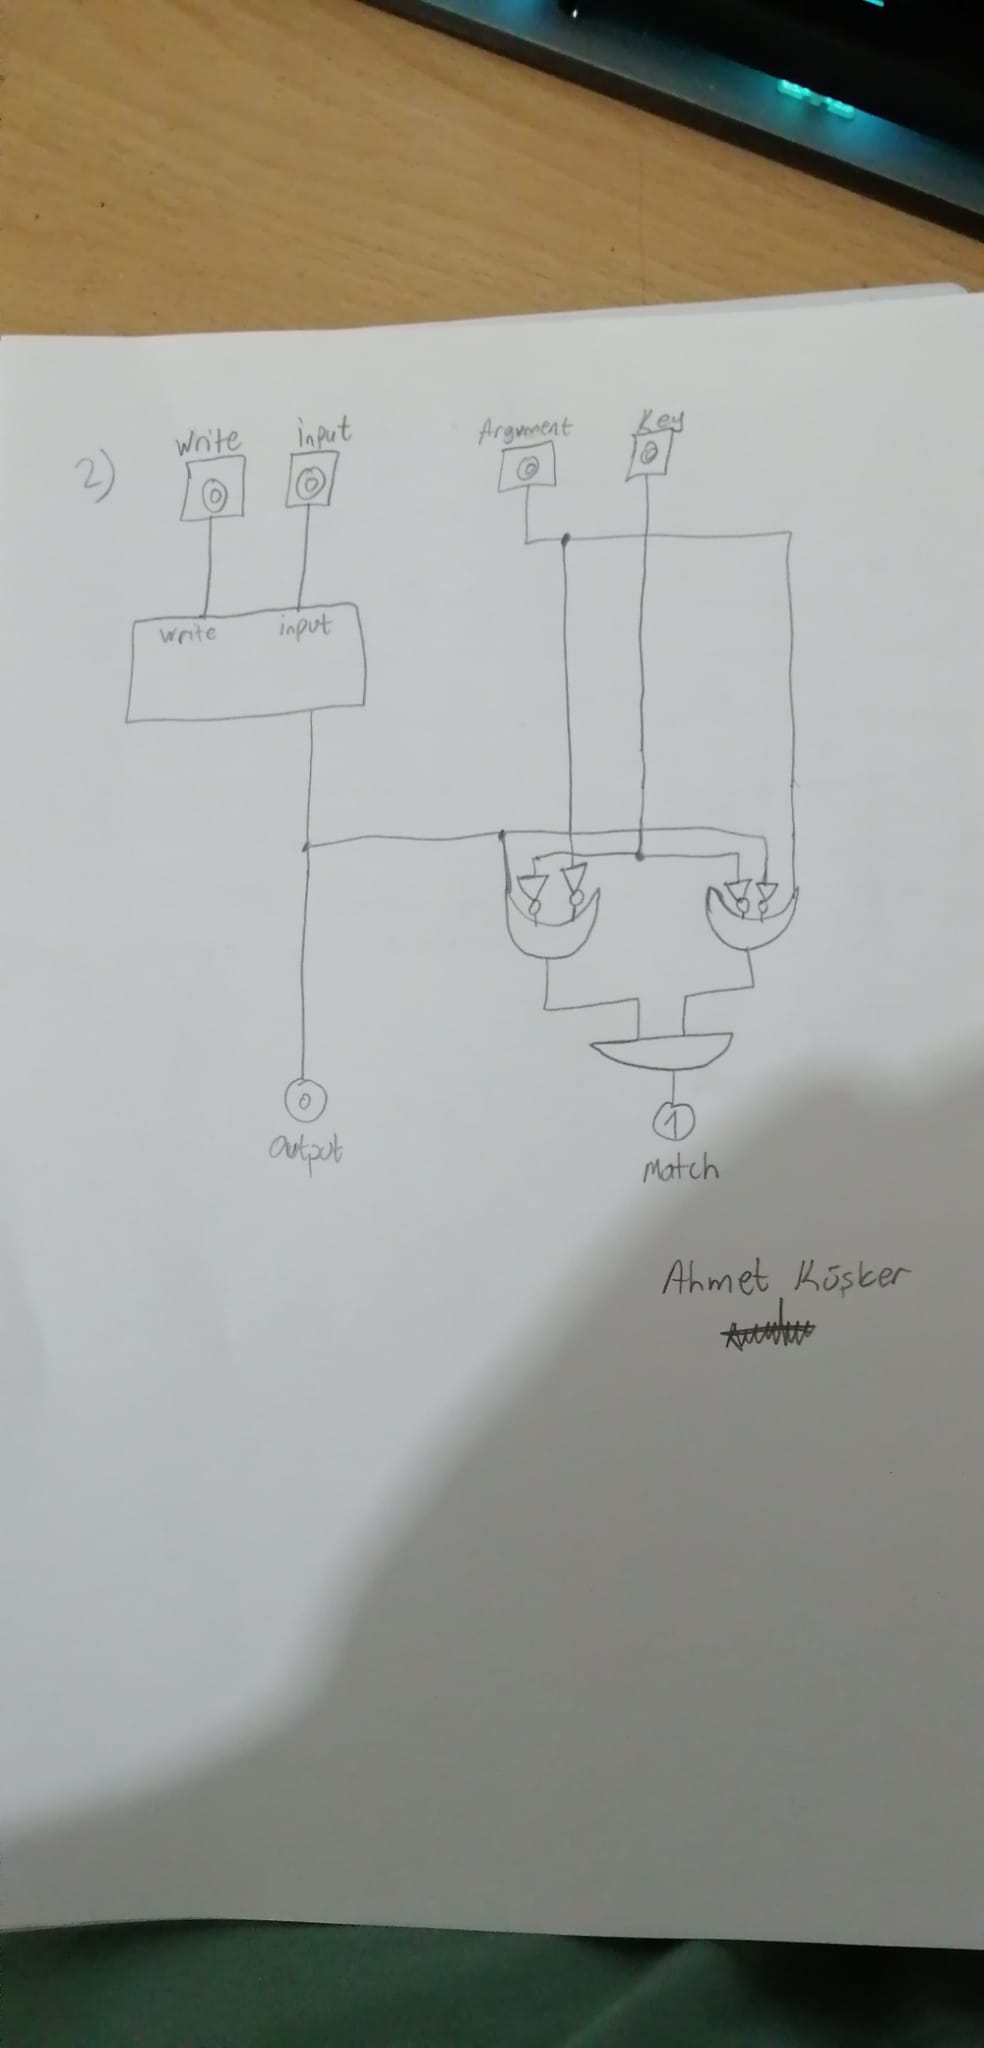 2)
Write
input
Argument
Key
0
0
0
0
write
input
0
Output
1
Match
Ahmet Köşker